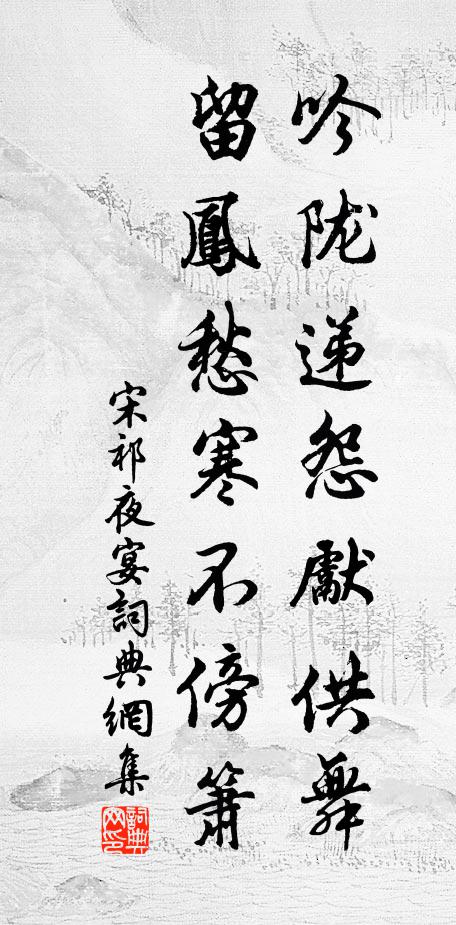 吟陇递怨獻供舞
留鳳愁寒不傍簫
宋祁夜宴詞典網集
詞典网印